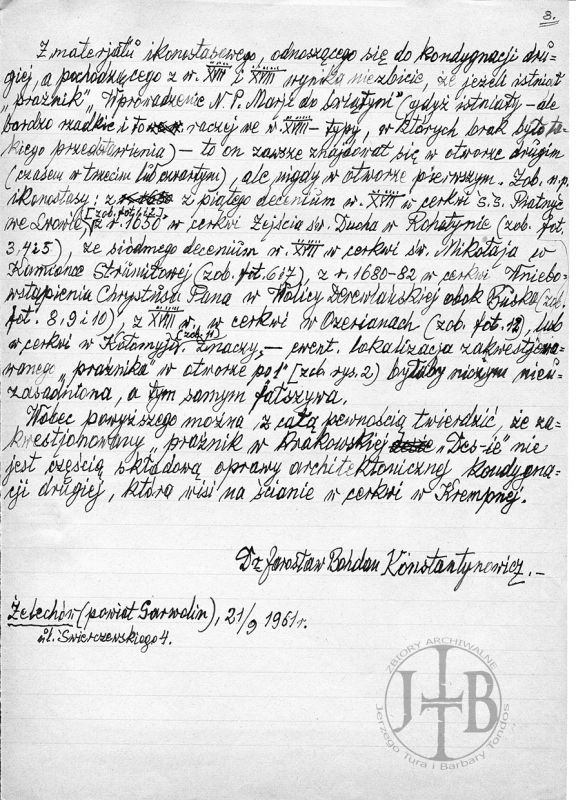 3.
Z materjału ikonostasowego, odnoszącego się do kondygnacji dru-
giej, a pochodzącego z w. XVII i XVIII wynika niezbicie, że jeżeli istniał
„praźnik" „Wprowadzenie N.P. Marji do świątyni" (gdyż istniały – ale
bardzo rzadkie i to raczej we w. XVIII – typy, w których brak było ta-
kiego przedstawienia) – to on zawsze znajdował się w otworze drugim
(czasem w trzecim lub czwartym), ale nigdy w otworze pierwszym. Zob. n.p.
ikonostasy: z piątego decenium w. XVII w cerkwi ś.ś. Piatnyć
we Lwowie, [zob. fot. 1 i 2.] z r. 1650 w cerkwi Zejścia św. Ducha w Rohatynie (zob. fot.
3, 4 i 5), ze siódmego decenium w. XVII w cerkwi św. Mikołaja w
Kamionce Strumiłowej (zob. fot. 6 i 7), z r. 1680-82 w cerkwi Wniebo-
wstąpienia Chrystusa Pana w Wolicy Derewlańskiej obok Buska (zob.
fot. 8, 9 i 10), z XVIII w. w cerkwi w Ozerianach (zob. fot. 12), lub
w cerkwi w Kołomyji. (zob. 11) Znaczy, – ewent. lokalizacja zakwestjono-
wanego „praźnika" w otworze po 1° [zob. rys. 2) byłaby niczym nieu-
zasadniona, a tym samym fałszywa.
Wobec powyższego można z całą pewnością twierdzić, że za-
kwestjonowany „praźnik w krakowskiej „Des-ie" nie
jest częścią składową oprawy architektonicznej kondygna-
cji drugiej, która wisi na ścianie w cerkwi w Krempnej.
Dr Jarosław Bohdan Konstantynowicz.–
Żelechów (powiat Garwolin), 21/9 1961 r.
ul. Świerczewskiego 4.
ZBIORY ARCHIWALNE
JTB
Jerzego Tura i Barbary Tondos